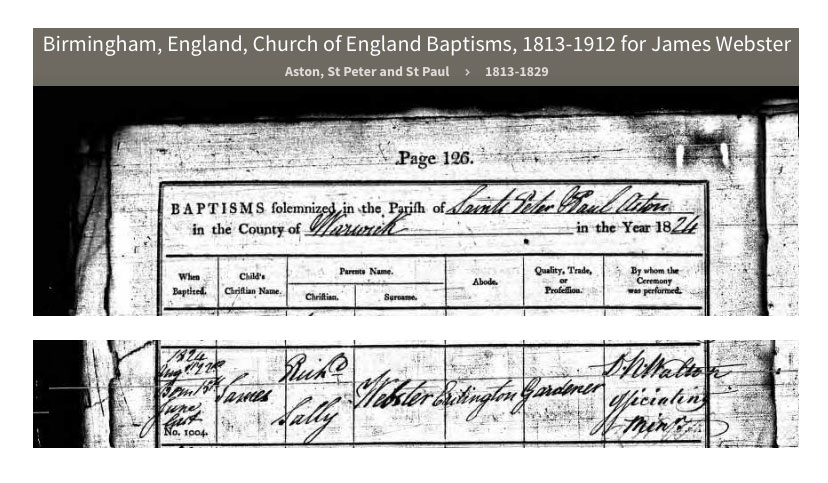 Birmingham, England, Church of England Baptisms, 1813-1912 for James Webster
Aston, St Peter and St Paul > 1813-1829
Page 126.
BAPTISMS solemnized in the Parish of Saints Peter & Paul Aston
in the County of Warwick in the Year 1824
When Baptized.
Child's Christian Name.
Parents Name.
Christian.
Surname.
Abode.
Quality, Trade, or Profession.
By whom the Ceremony was performed.
1824
Augst 22nd
Born
June
last
No. 1004.
James
Richd
Sally
Webster
Erdington
Gardener
Walton
officiating
Minr